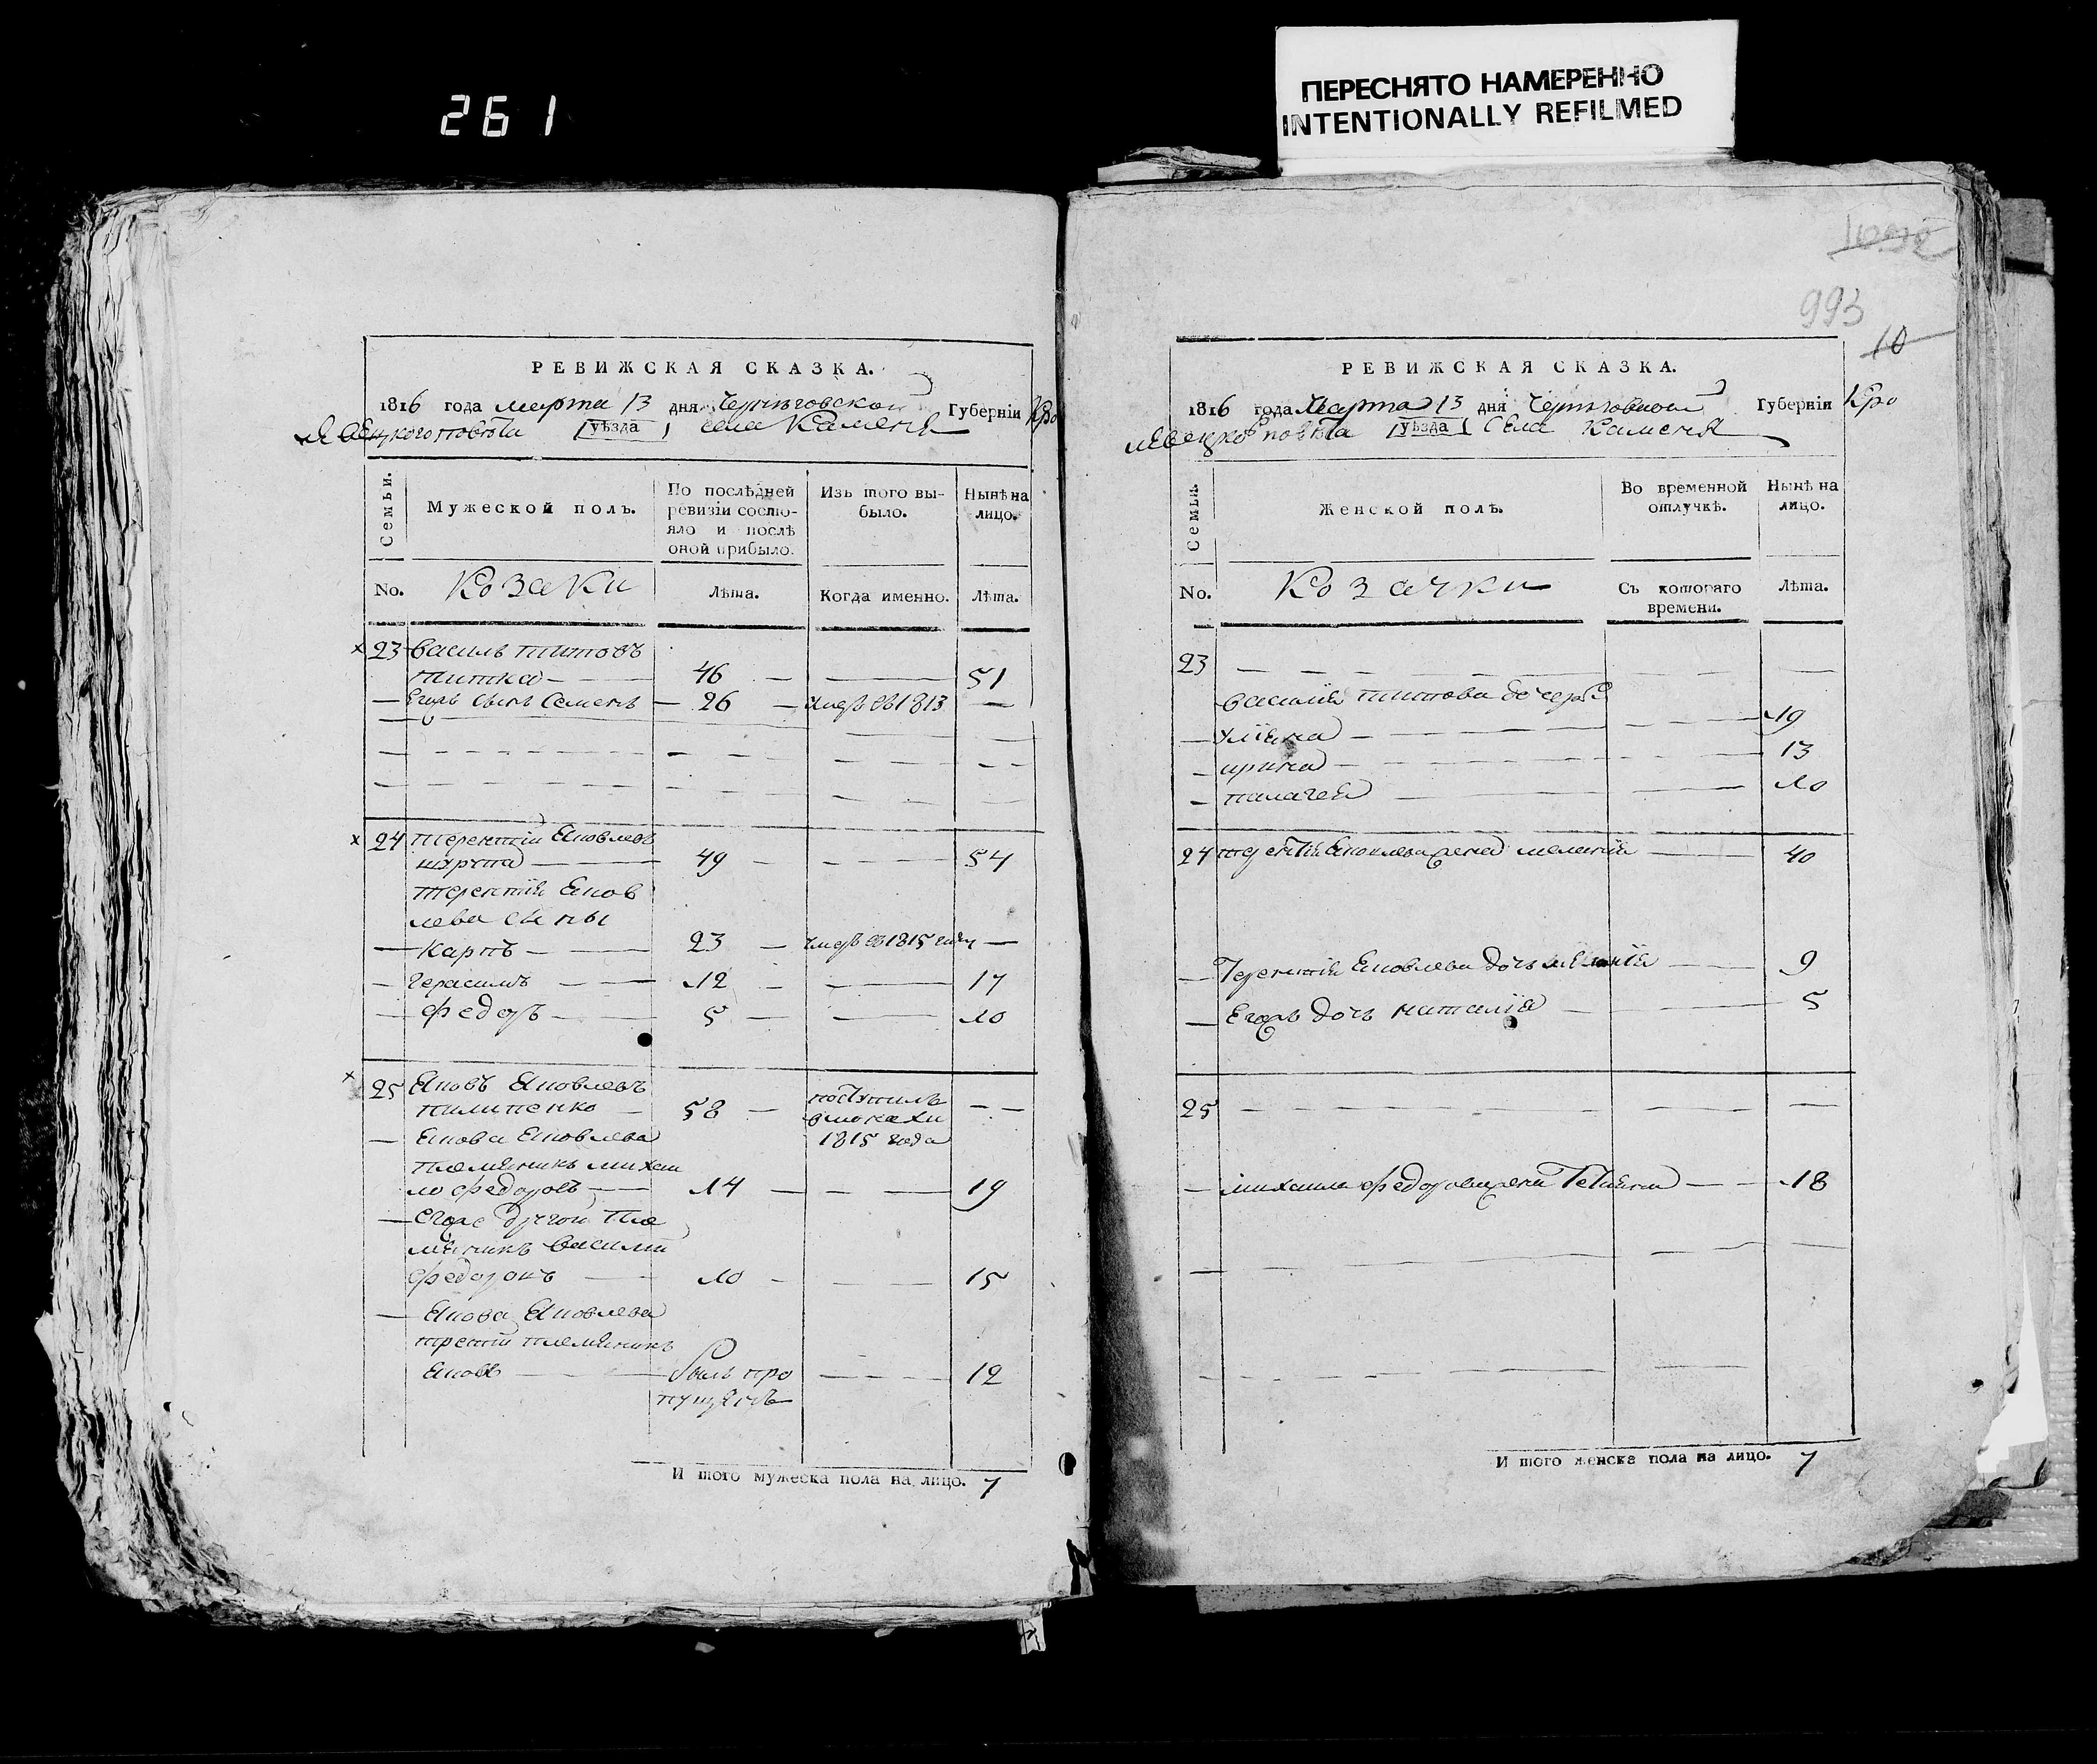 261
ПЕРЕСНЯТО НАМЕРЕННО
INTENTIONALLY REFILMED
РЕВИЖСКАЯ СКАЗКА.
1816 года марта 13 дня Черниговской Губернiи Кро
лѣвецкого повѣта [уѣзда] села Каменя
Семьи.
Мужеской полъ.
По послѣдней
ревизiи состо-
яло и послѣ
оной прибыло.
Изъ того вы-
было.
Нынѣ на
лицо.
No. Козаки Лѣта. Когда именно. Лѣта.
23 василь титовъ
титка 46 51
Егожъ сынъ Семенъ 26 умеръ въ 1813
24 терентiй Яковлевъ
49 54
терентiя Яков
лева сыны
Карпъ 23 умеръ въ 1815 году
Герасимъ 12 17
федоръ 5 10
25 Яковъ Яковлевъ
пилипенко 58 поступилъ
в монахи
1815 года
Якова Яковлева
племяникъ михай
ло федоровъ 14 19
Егоже другой пле
мяникъ василий
федоровъ 10 15
Якова Яковлева
третiй племяникъ
Яковъ былъ про 12
пущенъ
И того мужеска пола на лицо. 7
993
10
РЕВИЖСКАЯ СКАЗКА.
1816 года Марта 13 дня Черниговской Губернiи Кро
лѣвецко повѣта [уѣзда] Села Каменя
Семьи.
Женской полъ.
Во временной
отлучкѣ.
Нынѣ на
лицо.
No. Козачки Съ котораго Лѣта.
времени.
23
василия титова дочери
улiяна 19
ирина 13
палагея 10
24 терентiя Яковлева жена меланiя 40
Терентiя Яковлева дочь 9
Егожъ дочь наталiя 5
25
михаила федорова жена Татiяна 18
И того женска пола на лицо. 7